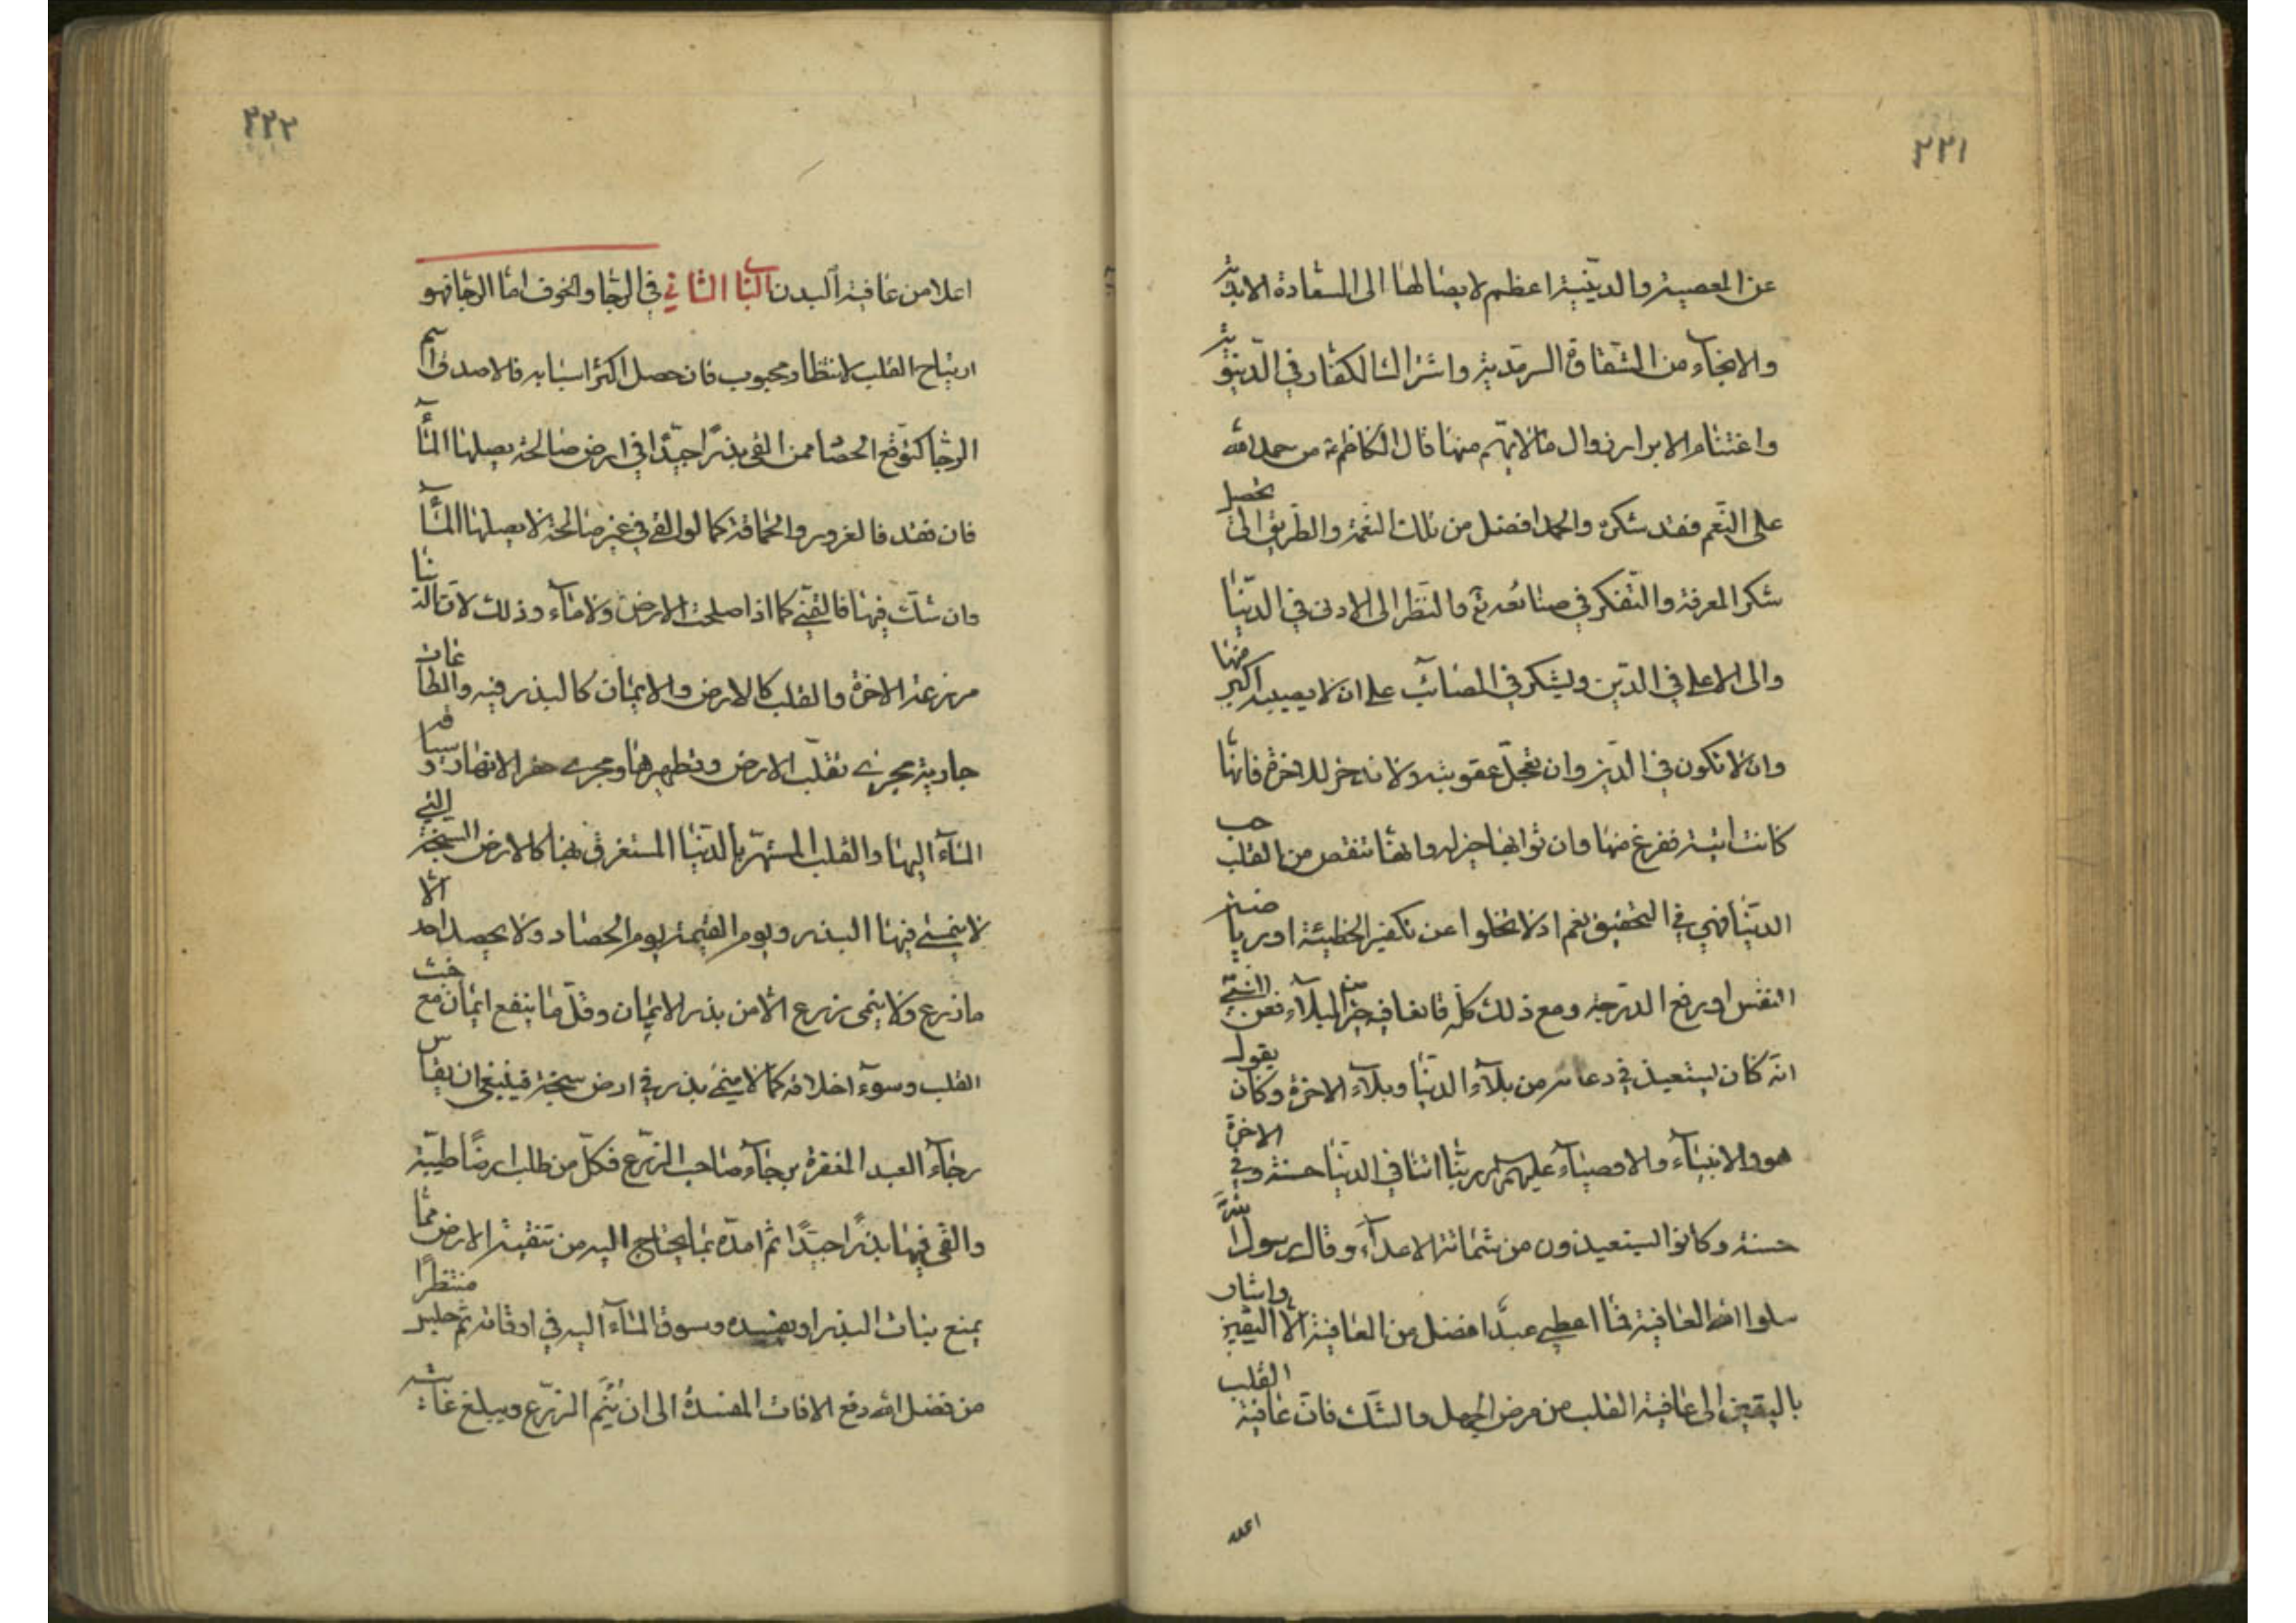 ٢٢١
عن المعصية والدينية اعظم لايصالها الى السعادة الابدية
والانجاء من الشقاوة السرمدية واشتراك الكفار في الدنيوية
واغتنام الابرار زوال مالا يهم منها قال الكاظم ع من حمد الله
على النعم فقد شكره والحمد افضل من تلك النعمة والطريق الى تحصيل
شكر المعرفة والتفكر في صنائعه تع والنظر الى الادنى في الدنيا
والى الاعلى في الدين ويشكر في المصائب على ان لا يصيبه اكبر منها
وان لا تكون في الدين وان تعجل عقوبته ولا تدخر للاخرة فانها
كانت اتية ففرغ منها وان ثوابها خير له وانها تنقص من القلب حب
الدنيا فهي في التحقيق نعم اذ لا تخلوا عن تكفير الخطيئة او رياضة
النفس او رفع الدرجة ومع ذلك كله فالعافية خير من البلاء فعن النبي
انه كان يستعيذ في دعائه من بلاء الدنيا وبلاء الاخرة وكان يقول
هو والانبياء والاوصياء عليهم السلم ربنا اتنا في الدنيا حسنة وفي الاخرة
حسنة وكانوا يستعيذون من شماتة الاعداء وقال رسول الله
سلوا الله العافية فما اعطي عبد افضل من العافية الا اليقين واشار
باليقين الى عافية القلب من مرض الجهل والشك فان عافية القلب
اعلا
٢٢٢
اعلا من عافية البدن الباب الثاني في الرجا والخوف اما الرجا فهو
ارتياح القلب لانتظار محبوب فان حصل اكثر اسبابه فالاصدق اسم
الرجا كتوقع الحصاد ممن القى بذرا جيدا في ارض صالحة يصلها الماء
فان فقد فالغرور والحماقة كما لو القى في غير صالحة لا يصلها الماء
وان شك فيها فالتمني كما اذا صلحت الارض ولا ماء وذلك لان الدنيا
مزرعة الاخرة والقلب كالارض والايمان كالبذر فيه والطاعات
جارية مجرى تقلب الارض وتطهيرها ومجرى حفر الانهار وسياقة
الماء اليها والقلب المستهتر بالدنيا المستغرق بها كالارض السبخة التي
لا ينمى فيها البذر ويوم القيمة يوم الحصاد ولا يحصد احد الا
ما زرع ولا ينمى زرع الا من بذر الايمان وقل ما ينفع ايمان مع خبث
القلب وسوء اخلاقه كما لا ينمى بذر في ارض سبخة فينبغي ان يقاس
رجاء العبد المغفرة برجاء صاحب الزرع فكل من طلب ارضا طيبة
والقى فيها بذرا جيدا ثم امده بما يحتاج اليه من تنقية الارض مما
يمنع نبات البذر او يفسده وسوق الماء اليه في اوقاته ثم جلس منتظرا
من فضل الله دفع الافات المفسدة الى ان يتم الزرع ويبلغ غايته